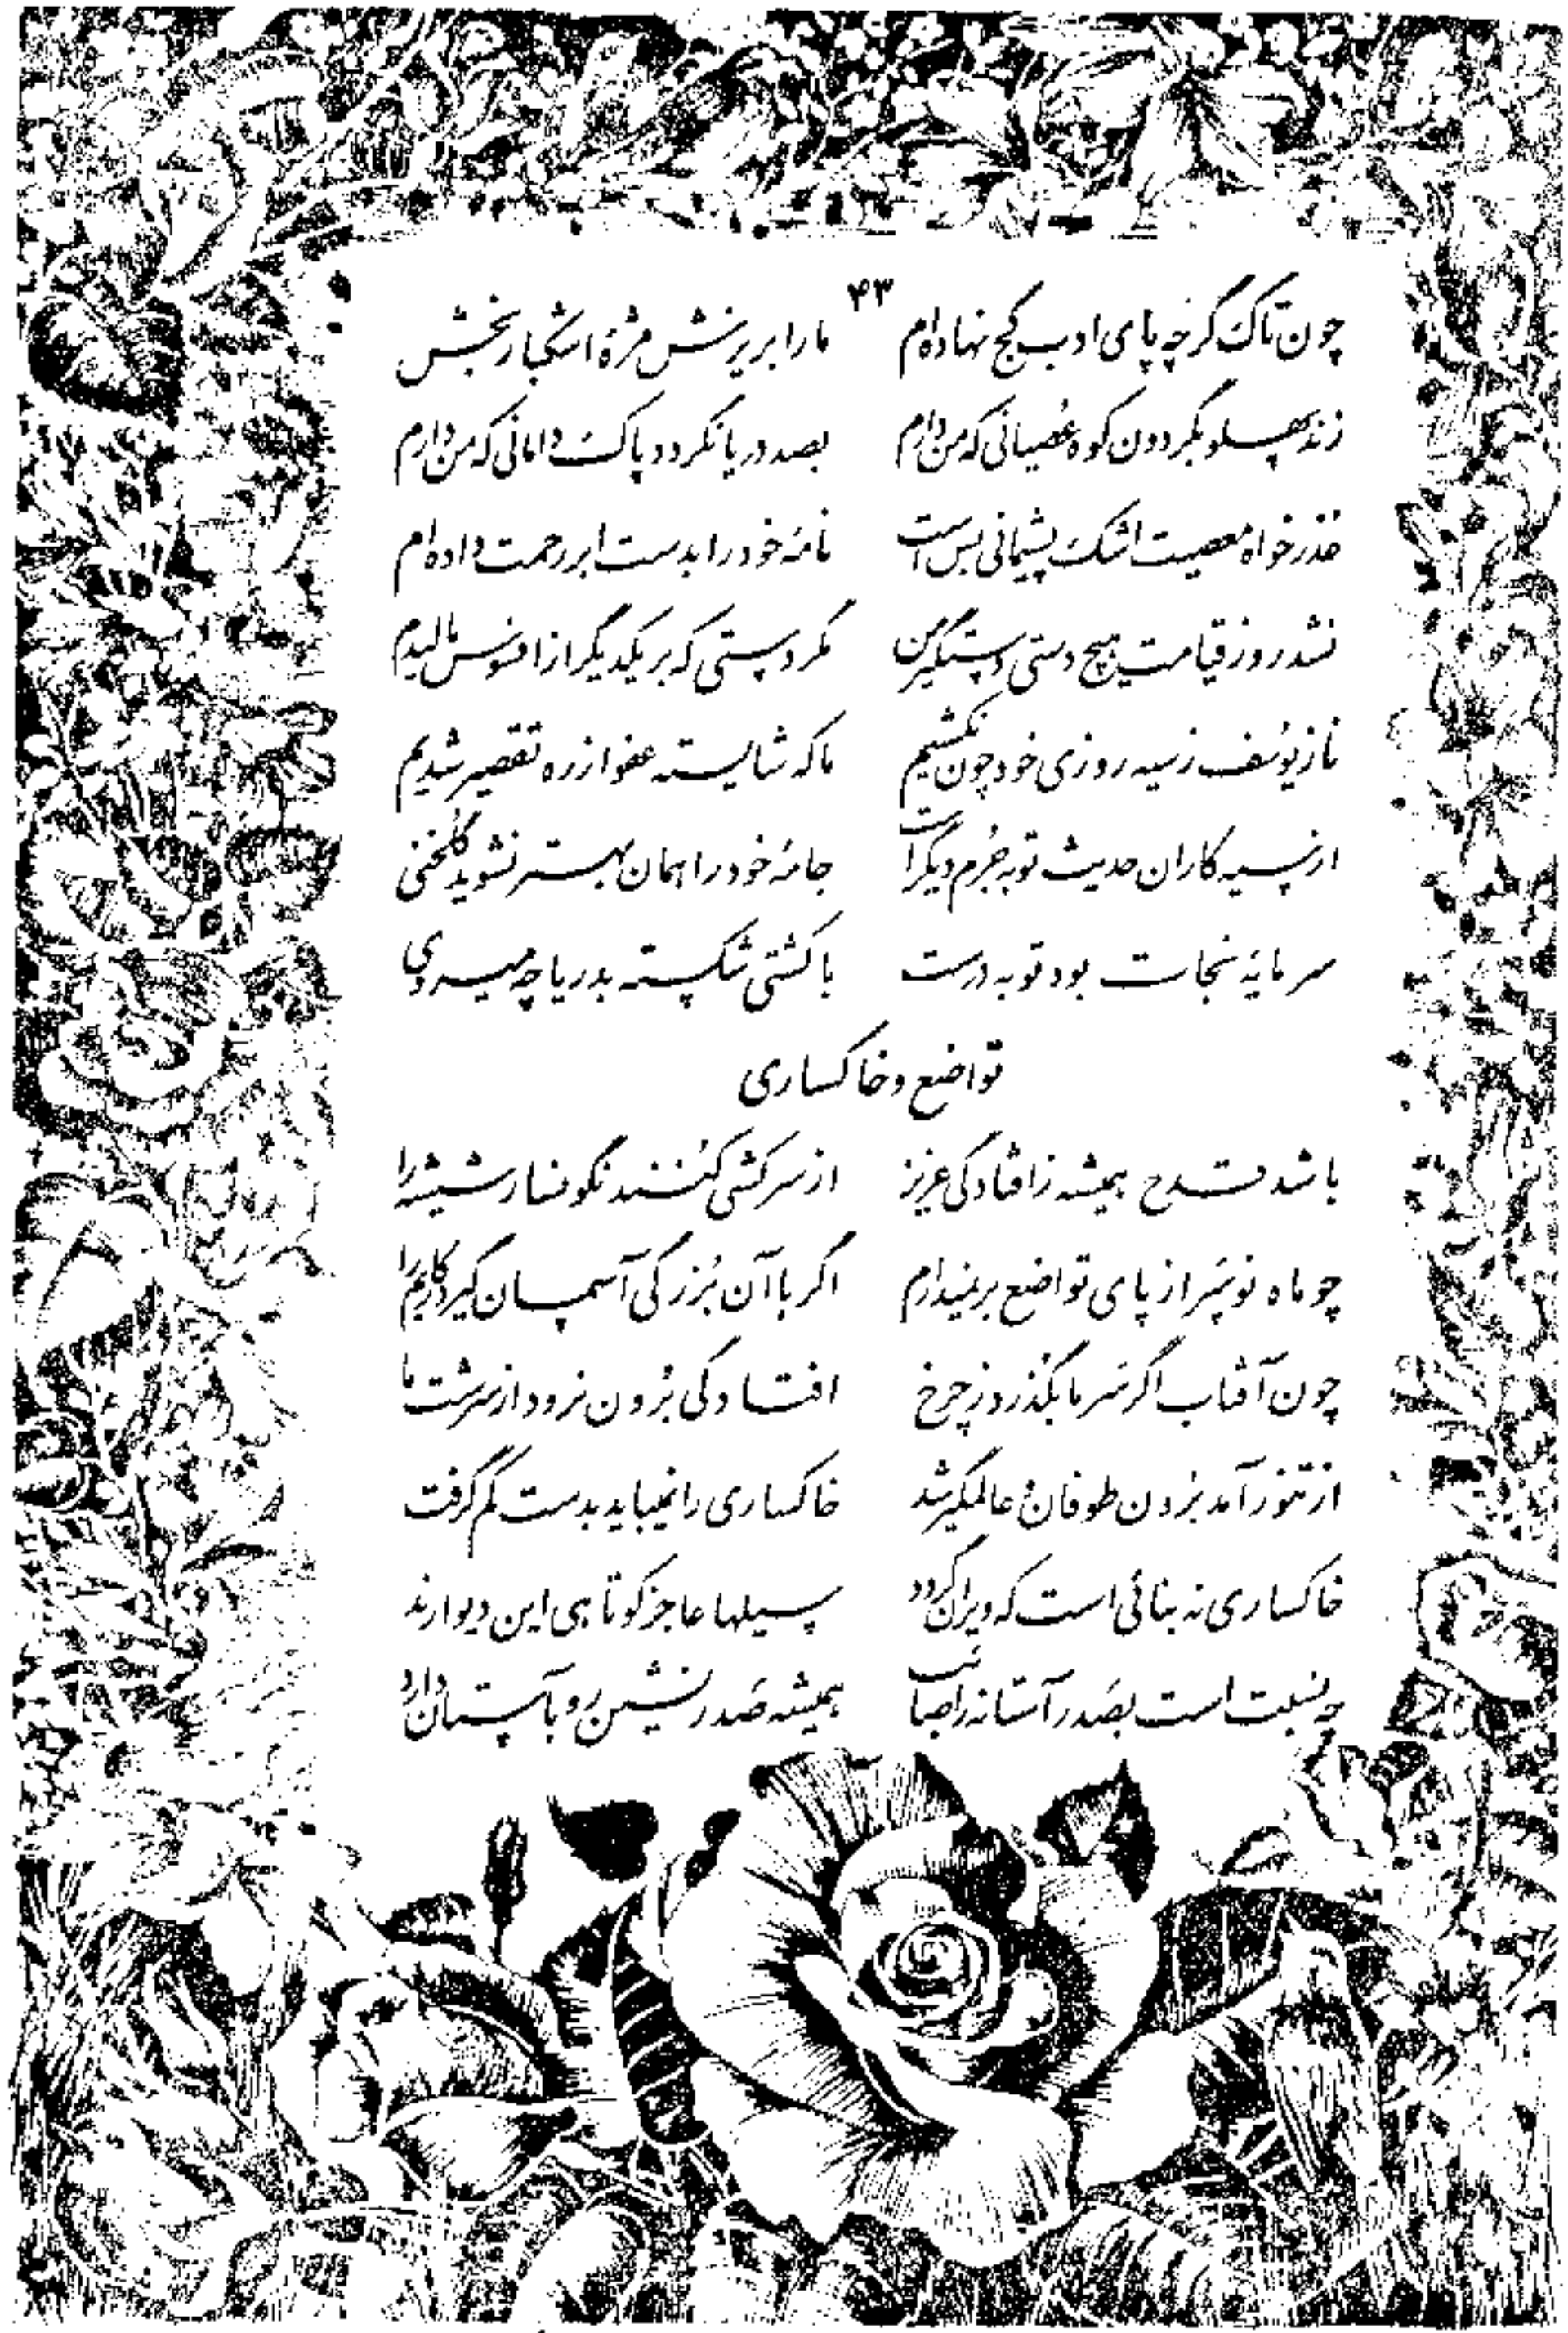 ۴۳
چون تاک گرچه پای ادب کج نهاده‌ام ما را بریزش مژهٔ اشکبار بخش
زند پهلو بگردون کوه عُصیانی که من دارم بصد دریا نگردد پاک دامانی که من دارم
عذرخواه معصیت اشک پشیمانی بس است نامهٔ خود را بدست ابر رحمت داده‌ام
نشد روز قیامت هیچ دستی دستگیر من مگر دستی که بر یکدیگر از افسوس مالیدم
ناز یوسف ز سیه روزی خود چون نکشیم ما که شایسته عفو از ره تقصیر شدیم
از سیه کاران حدیث توبه جُرم دیگر است جامهٔ خود را همان بهتر نشوید گلخنی
سرمایهٔ نجات بود توبه درست با کشتی شکسته بدریا چه میروی
تواضع و خاکساری
باشد قدح همیشه ز افتادگی عزیز از سرکشی کُنند نگونسار شیشه را
چو ماه نو سَر از پای تواضع برنیدارم اگر با آن بُزرگی آسمان گیرد رکابم را
چون آفتاب اگر سَر ما بگذرد ز چرخ افتادگی بُرون نرود از سرشت ما
از تنور آمد بُرون طوفان و عالمگیر شد خاکساری را نمیباید بدست کم گرفت
خاکساری نه بنائی است که ویران گردد سیلها عاجز کوتاهی این دیوارند
چه نسبت است بصَدر آستانه را صائب همیشه صَدرنشین رو بآستان دارد